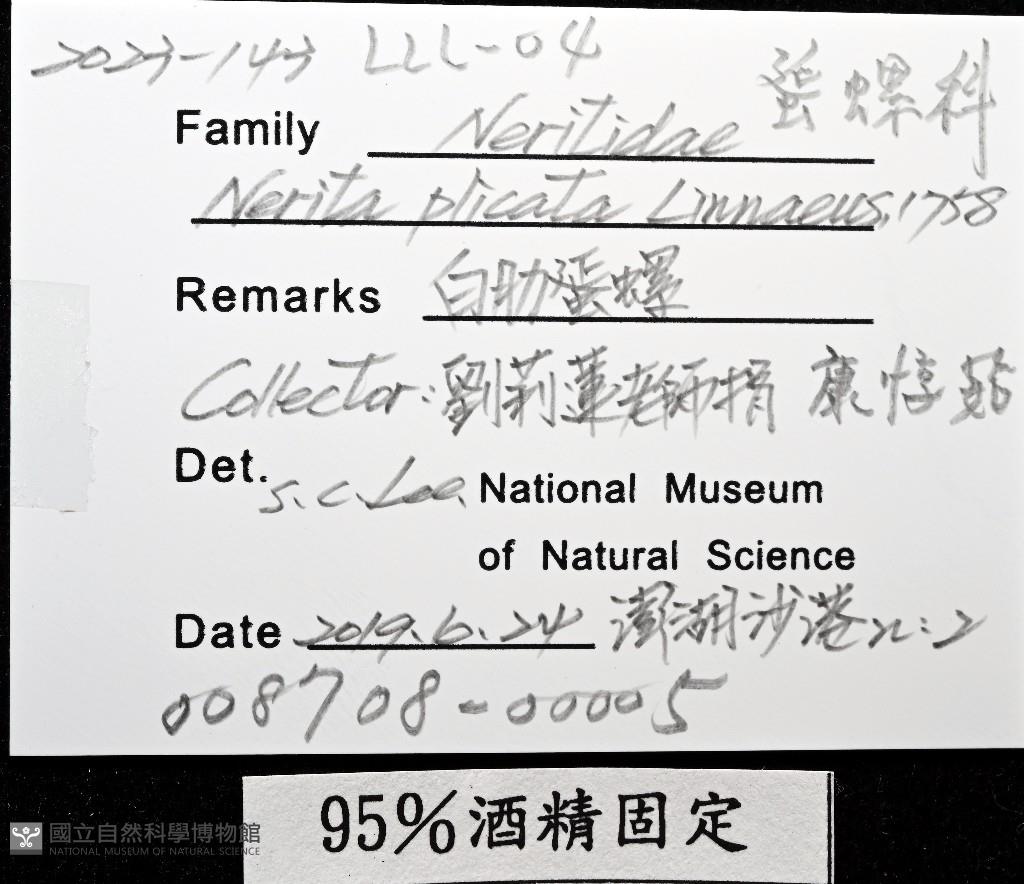 2023-143 LLL-04
Family Neritidae 蜑螺科
Nerita plicata Linnaeus, 1758
Remarks 白肋蜑螺
Collector: 劉莉蓮老師捐 康惇
Det. S.C. Lee. National Museum
of Natural Science
Date 2019.6.24 澎湖沙港 n: 2
008708-00005
95%酒精固定
國立自然科學博物館
NATIONAL MUSEUM OF NATURAL SCIENCE